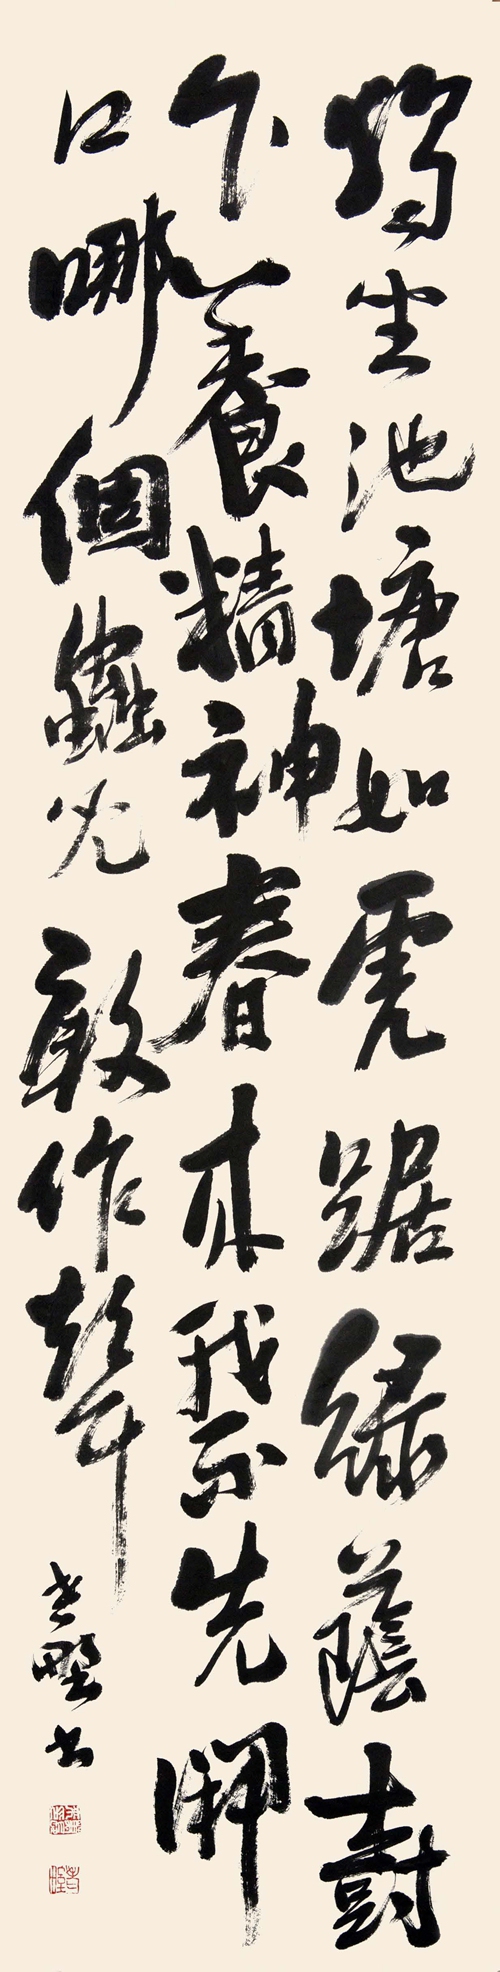 獨坐池塘如虎踞綠蔭樹
下養精神春來我不先開
口哪個蟲兒敢作聲
老墅書